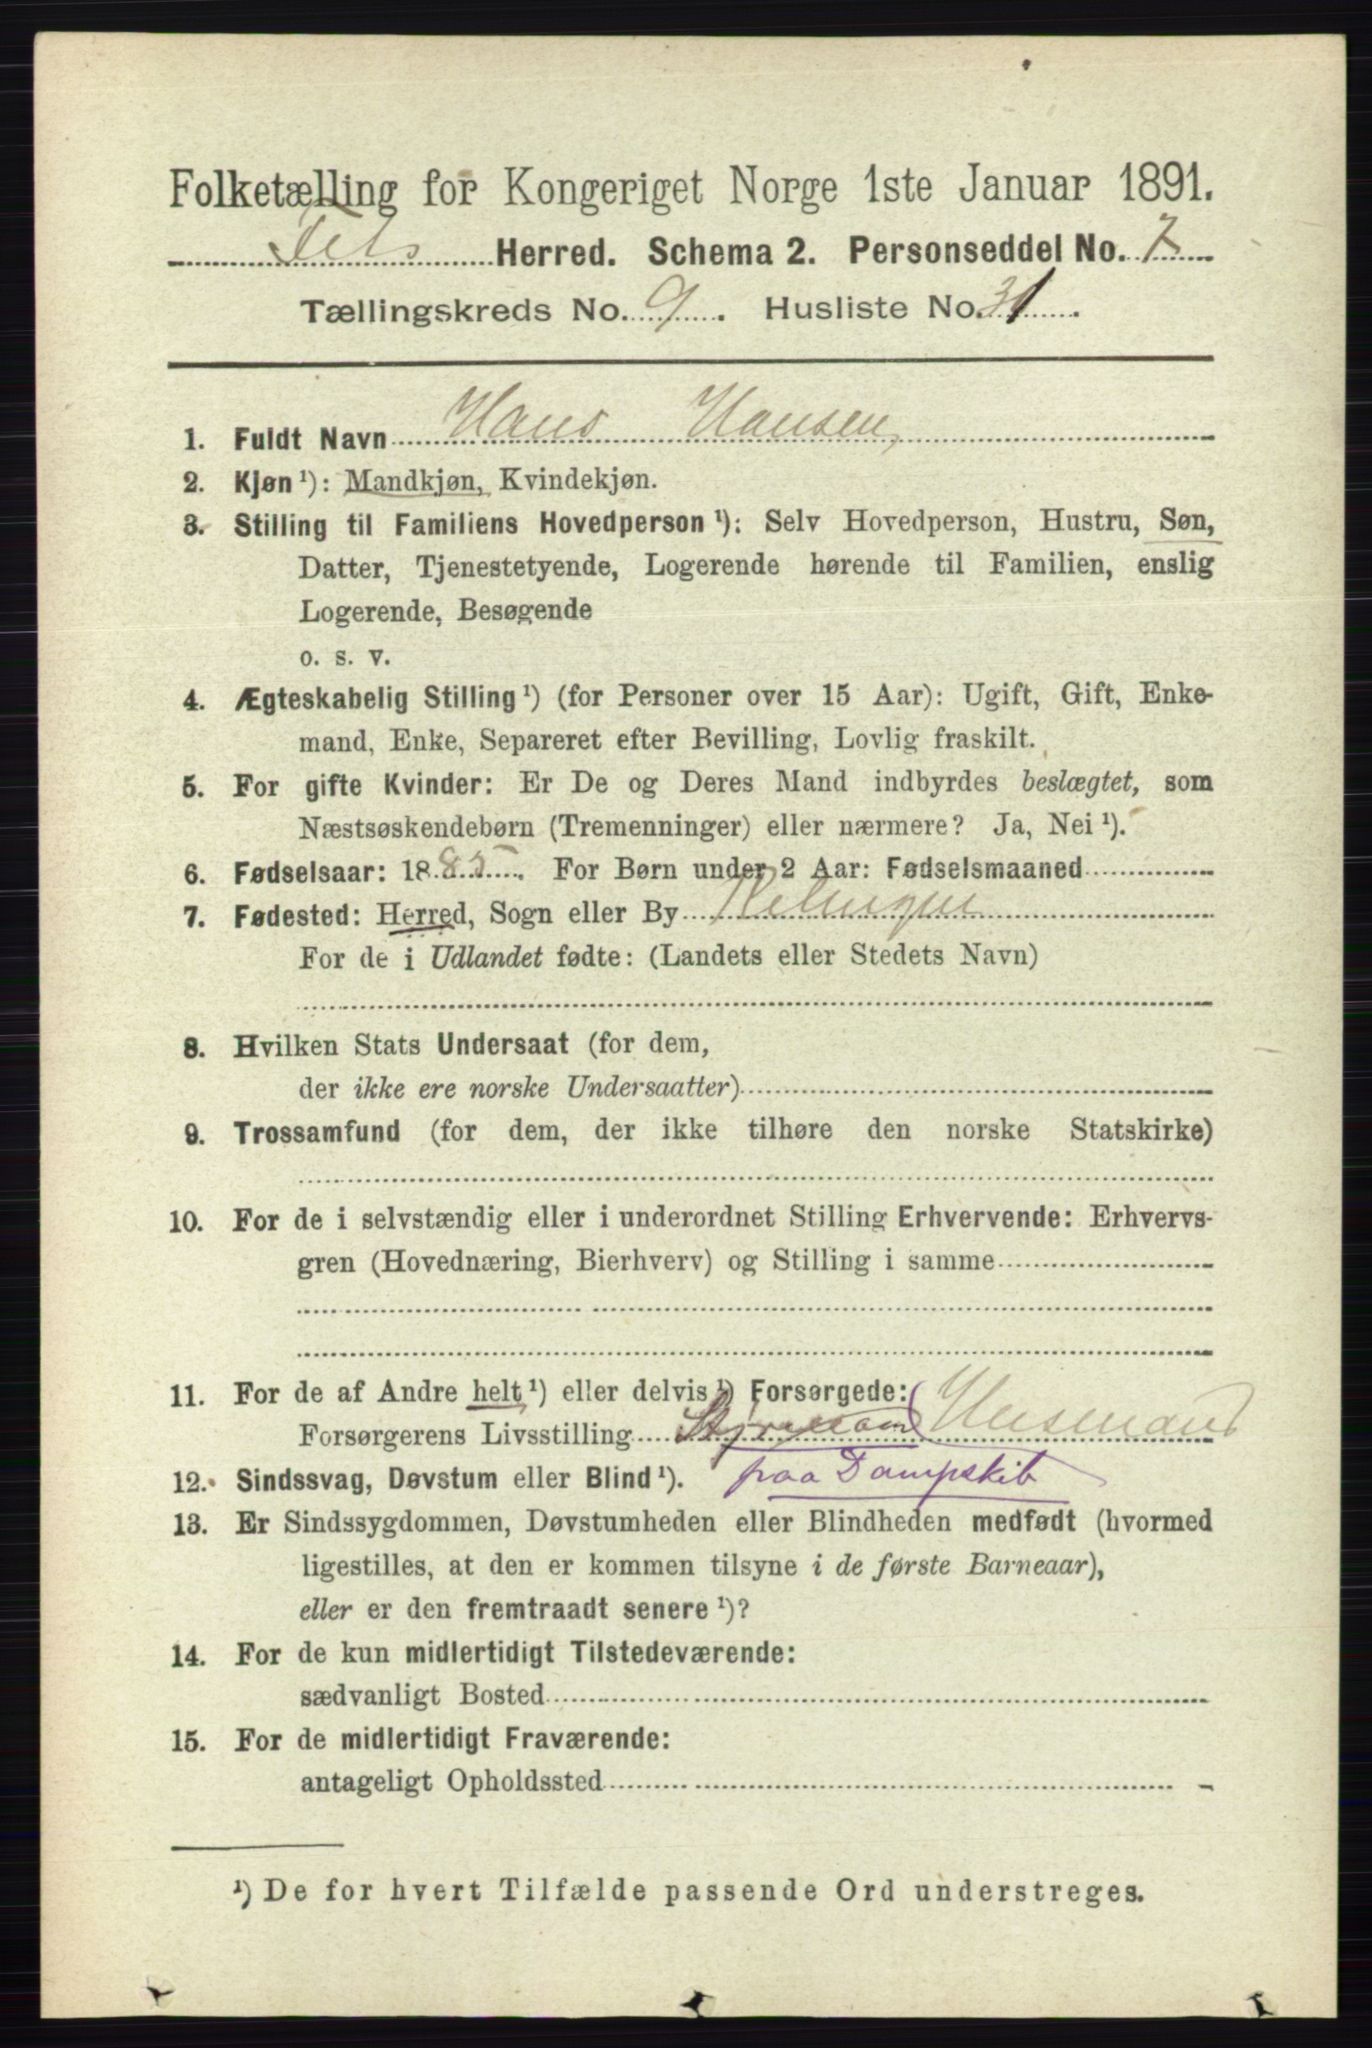 Folketælling for Kongeriget Norge 1ste Januar 1891.
Fets Herred. Schema 2. Personseddel No. 7
Tællingskreds No. 9. Husliste No. 31.
1. Fuldt Navn Hans Hansen,
2. Kjøn ¹): Mandkjøn, Kvindekjøn.
3. Stilling til Familiens Hovedperson ¹): Selv Hovedperson, Hustru, Søn,
Datter, Tjenestetyende, Logerende hørende til Familien, enslig
Logerende, Besøgende
o. s. v.
4. Ægteskabelig Stilling ¹) (for Personer over 15 Aar): Ugift, Gift, Enke-
mand, Enke, Separeret efter Bevilling, Lovlig fraskilt.
5. For gifte Kvinder: Er De og Deres Mand indbyrdes beslægtet, som
Næstsøskendebørn (Tremenninger) eller nærmere? Ja, Nei ¹).
6. Fødselsaar: 1885. For Børn under 2 Aar: Fødselsmaaned
7. Fødested: Herred, Sogn eller By Relingen
For de i Udlandet fødte: (Landets eller Stedets Navn)
8. Hvilken Stats Undersaat (for dem,
der ikke ere norske Undersaatter)
9. Trossamfund (for dem, der ikke tilhøre den norske Statskirke)
10. For de i selvstændig eller i underordnet Stilling Erhvervende: Erhvervs-
gren (Hovednæring, Bierhverv) og Stilling i samme
11. For de af Andre helt ¹) eller delvis ¹) Forsørgede:
Forsørgerens Livsstilling Styrmand Husmand
12. Sindssvag, Døvstum eller Blind ¹). paa Dampskib
13. Er Sindssygdommen, Døvstumheden eller Blindheden medfødt (hvormed
ligestilles, at den er kommen tilsyne i de første Barneaar),
eller er den fremtraadt senere ¹)?
14. For de kun midlertidigt Tilstedeværende:
sædvanligt Bosted
15. For de midlertidigt Fraværende:
antageligt Opholdssted
¹) De for hvert Tilfælde passende Ord understreges.